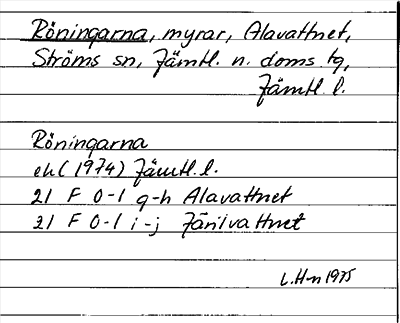 Röningarna, myrar, Alavattnet,
Ströms sn, Jämtl. n. doms. tg,
Jämtl. l.
Röningarna
ek (1974) Jämtl. l.
21 F 0-1 g-h Alavattnet
21 F 0-1 i-j Järilvattnet
L.H-n 1975